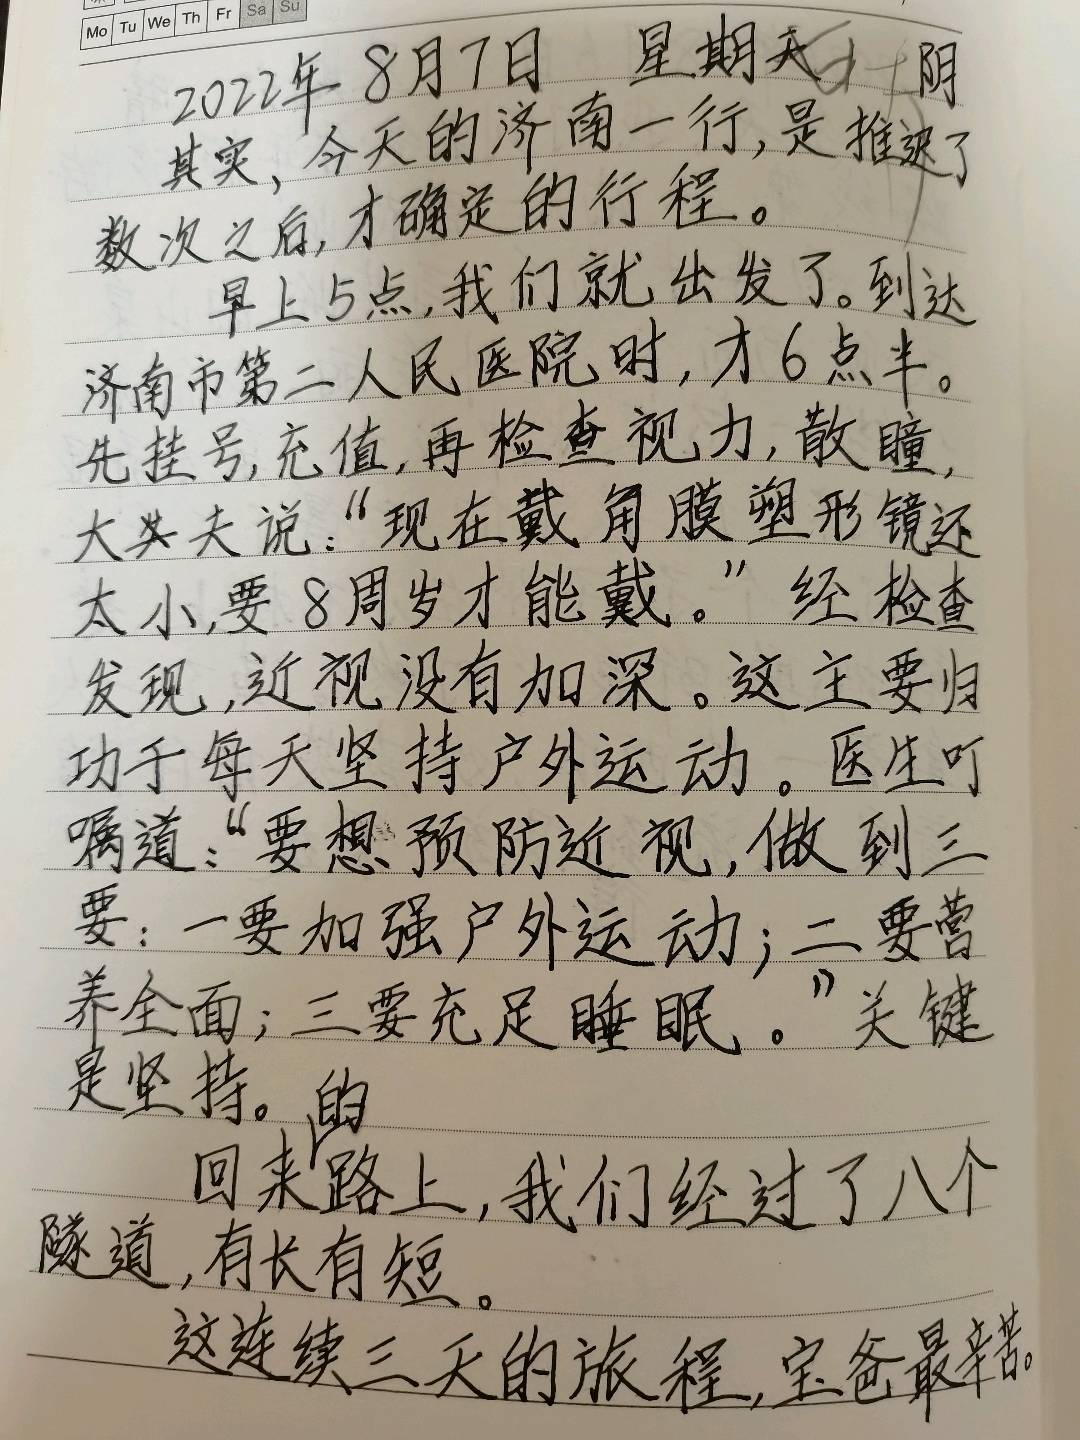 Mo Tu We Th Fr Sa Su
2022年8月7日 星期天 阴
其实，今天的济南一行，是推迟了
数次之后，才确定的行程。
早上5点，我们就出发了。到达
济南市第二人民医院时，才6点半。
先挂号，充值，再检查视力，散瞳，
大夫说：“现在戴角膜塑形镜还
太小，要8周岁才能戴。”经检查
发现，近视没有加深。这主要归
功于每天坚持户外运动。医生叮
嘱道：“要想预防近视，做到三
要：一要加强户外运动；二要营
养全面；三要充足睡眠。”关键
是坚持。
回来的路上，我们经过了八个
隧道，有长有短。
这连续三天的旅程，宝爸最辛苦。